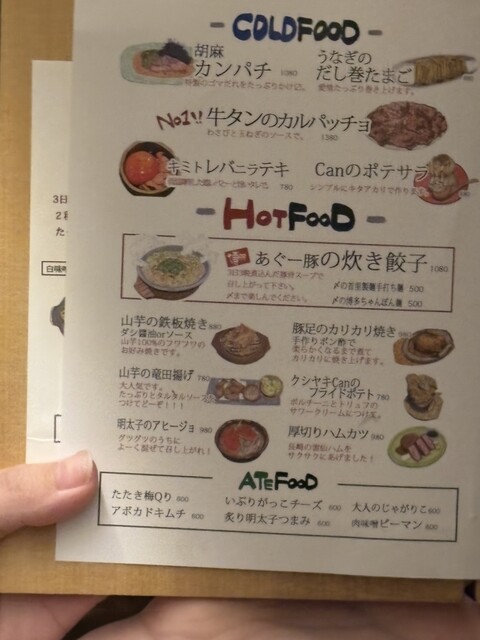 COLDFOOD
胡麻
カンパチ 1080
特製のゴマだれをたっぷりかけて。
うなぎの
だし巻たまご
愛情たっぷり巻き上げます。
No1!!
牛タンのカルパッチョ
わさびと玉ねぎのソースで。 1380
キミトレバニラテキ
780
Canのポテサラ
シンプルにキタアカリで作りま
HOTFOOD
あぐー豚の炊き餃子 1080
炊き込んだ豚骨スープで
召し上がって下さい。
〆まで楽しんでください。
〆の岩田製麺手打ち麺 500
〆の博多ちゃんぽん麺 500
山芋の鉄板焼き 680
ダシ醤油orソース
山芋100%のフワフワの
お好み焼きです。
豚足のカリカリ焼き
手作りポン酢で
柔らかくなるまで煮て
カリカリに焼き上げます。
山芋の竜田揚げ 780
大人気です。
たっぷりとタルタルソース
つけてどーぞ!!!
クシヤキCanの
フライドポテト 780
ポルチーニとトリュフの
サワークリームにつけます。
明太子のアヒージョ 980
グツグツのうちに
よーく混ぜて召し上がれ!
厚切りハムカツ 980
長崎の雲仙ハムを
サクサクにあげました!
ATEFOOD
たたき梅Qり 600
いぶりがっこチーズ 600
大人のじゃがりこ 600
アボカドキムチ 600
炙り明太子つまみ 600
肉味噌ピーマン 600
3日
2種
た
白味噌